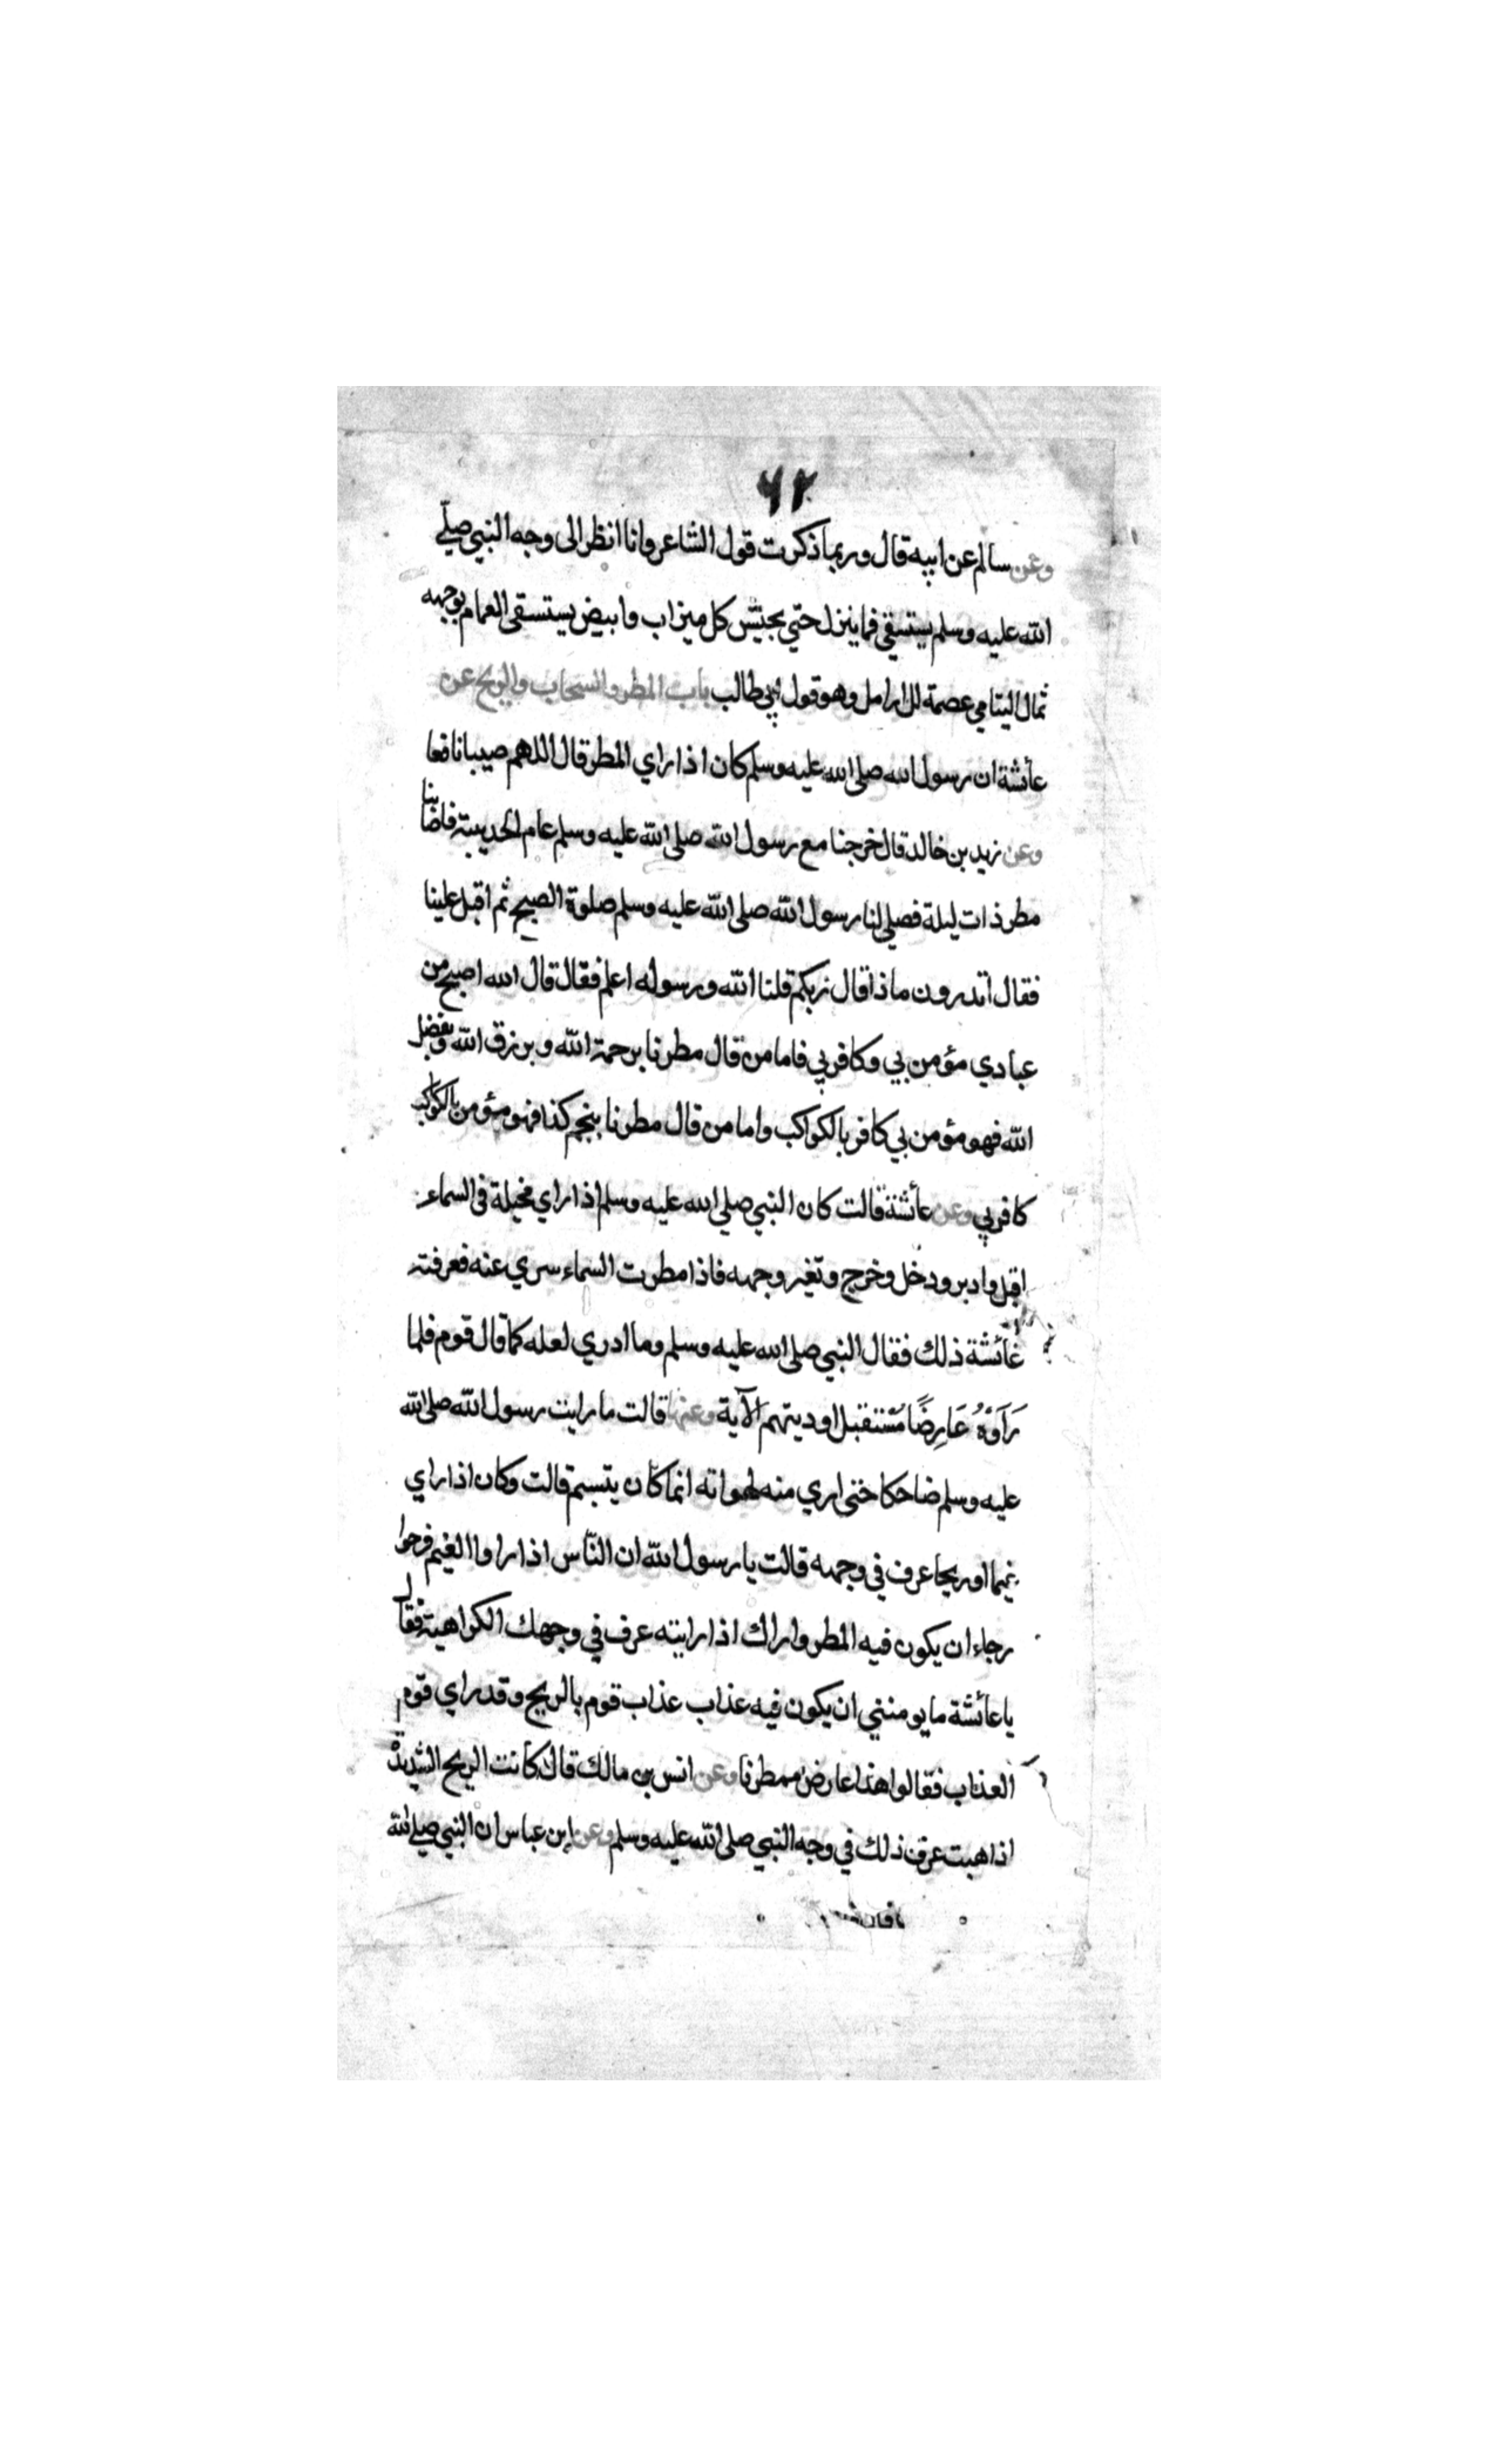 ٦٢
وعن سالم عن ابيه قال وربما ذكرت قول الشاعر وانا انظر الى وجه النبي صلى
الله عليه وسلم يستسقي فما ينزل حتي يجيش كل ميزاب وابيض يستسقى الغمام بوجهه
ثمال اليتامي عصمة للارامل وهو قول ابي طالب باب المطر والسحاب والريح عن
عائشة ان رسول الله صلى الله عليه وسلم كان اذا راي المطر قال اللهم صيبا نافعا
وعن زيد بن خالد قال خرجنا مع رسول الله صلى الله عليه وسلم عام الحديبية فاصابنا
مطر ذات ليلة فصلى لنا رسول الله صلى الله عليه وسلم صلوة الصبح ثم اقبل علينا
فقال اتدرون ماذا قال ربكم قلنا الله ورسوله اعلم فقال قال الله اصبح من
عبادي مؤمن بي وكافر بي فاما من قال مطرنا برحمة الله وبرزق الله وبفضل
الله فهو مؤمن بي كافر بالكواكب واما من قال مطرنا بنجم كذا فهو مؤمن بالكواكب
كافر بي وعن عائشة قالت كان النبي صلي الله عليه وسلم اذا راي مخيلة فى السماء
اقبل وادبر ودخل وخرج وتغير وجهه فاذا مطرت السماء سري عنه فعرفته
عائشة ذلك فقال النبي صلى الله عليه وسلم وما ادري لعله كما قال قوم فلما
رَآَوْهُ عَارِضًا مُسْتقبل اوديتهم الآية وعنها قالت ما رايت رسول الله صلى الله
عليه وسلم ضاحكا حتى اري منه لهواته انما كان يتبسم قالت وكان اذا راي
غيما او ريحا عرف في وجهه قالت يا رسول الله ان النّاس اذا راوا الغيم فرحوا
رجاء ان يكون فيه المطر واراك اذا رايته عرف في وجهك الكراهية فقال
يا عائشة ما يومنني ان يكون فيه عذاب عذاب قوم بالريح وقد راي قوم
العذاب فقالوا هذا عارض ممطرنا وعن انس بن مالك قال كانت الريح الشديدة
اذا هبت عرف ذلك في وجه النبي صلى الله عليه وسلم وعن ابن عباس ان النبي صلى الله